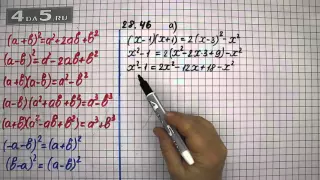 4DA5.RU
28.46 a)
(a+b)²=a²+2ab+b²
(a-b)²=a²-2ab+b²
a²-b²=(a-b)(a+b)
(a-b)(a²+ab+b²)=a³-b³
(a+b)(a²-ab+b²)=a³+b³
(-a-b)²=(a+b)²
(b-a)²=(a-b)²
(x-1)(x+1)=2(x-3)²-x²
x²-1=2(x²-2x·3+9)-x²
x²-1=2x²-12x+18-x²